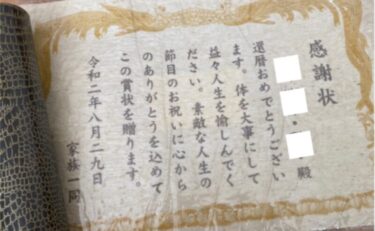 感謝状
・ 殿
還暦おめでとうござい
ます。体を大事にして
益々人生を愉しんでく
ださい。素敵な人生の
節目のお祝いに心から
のありがとうを込めて
この賞状を贈ります。
令和二年八月二九日
家族一同